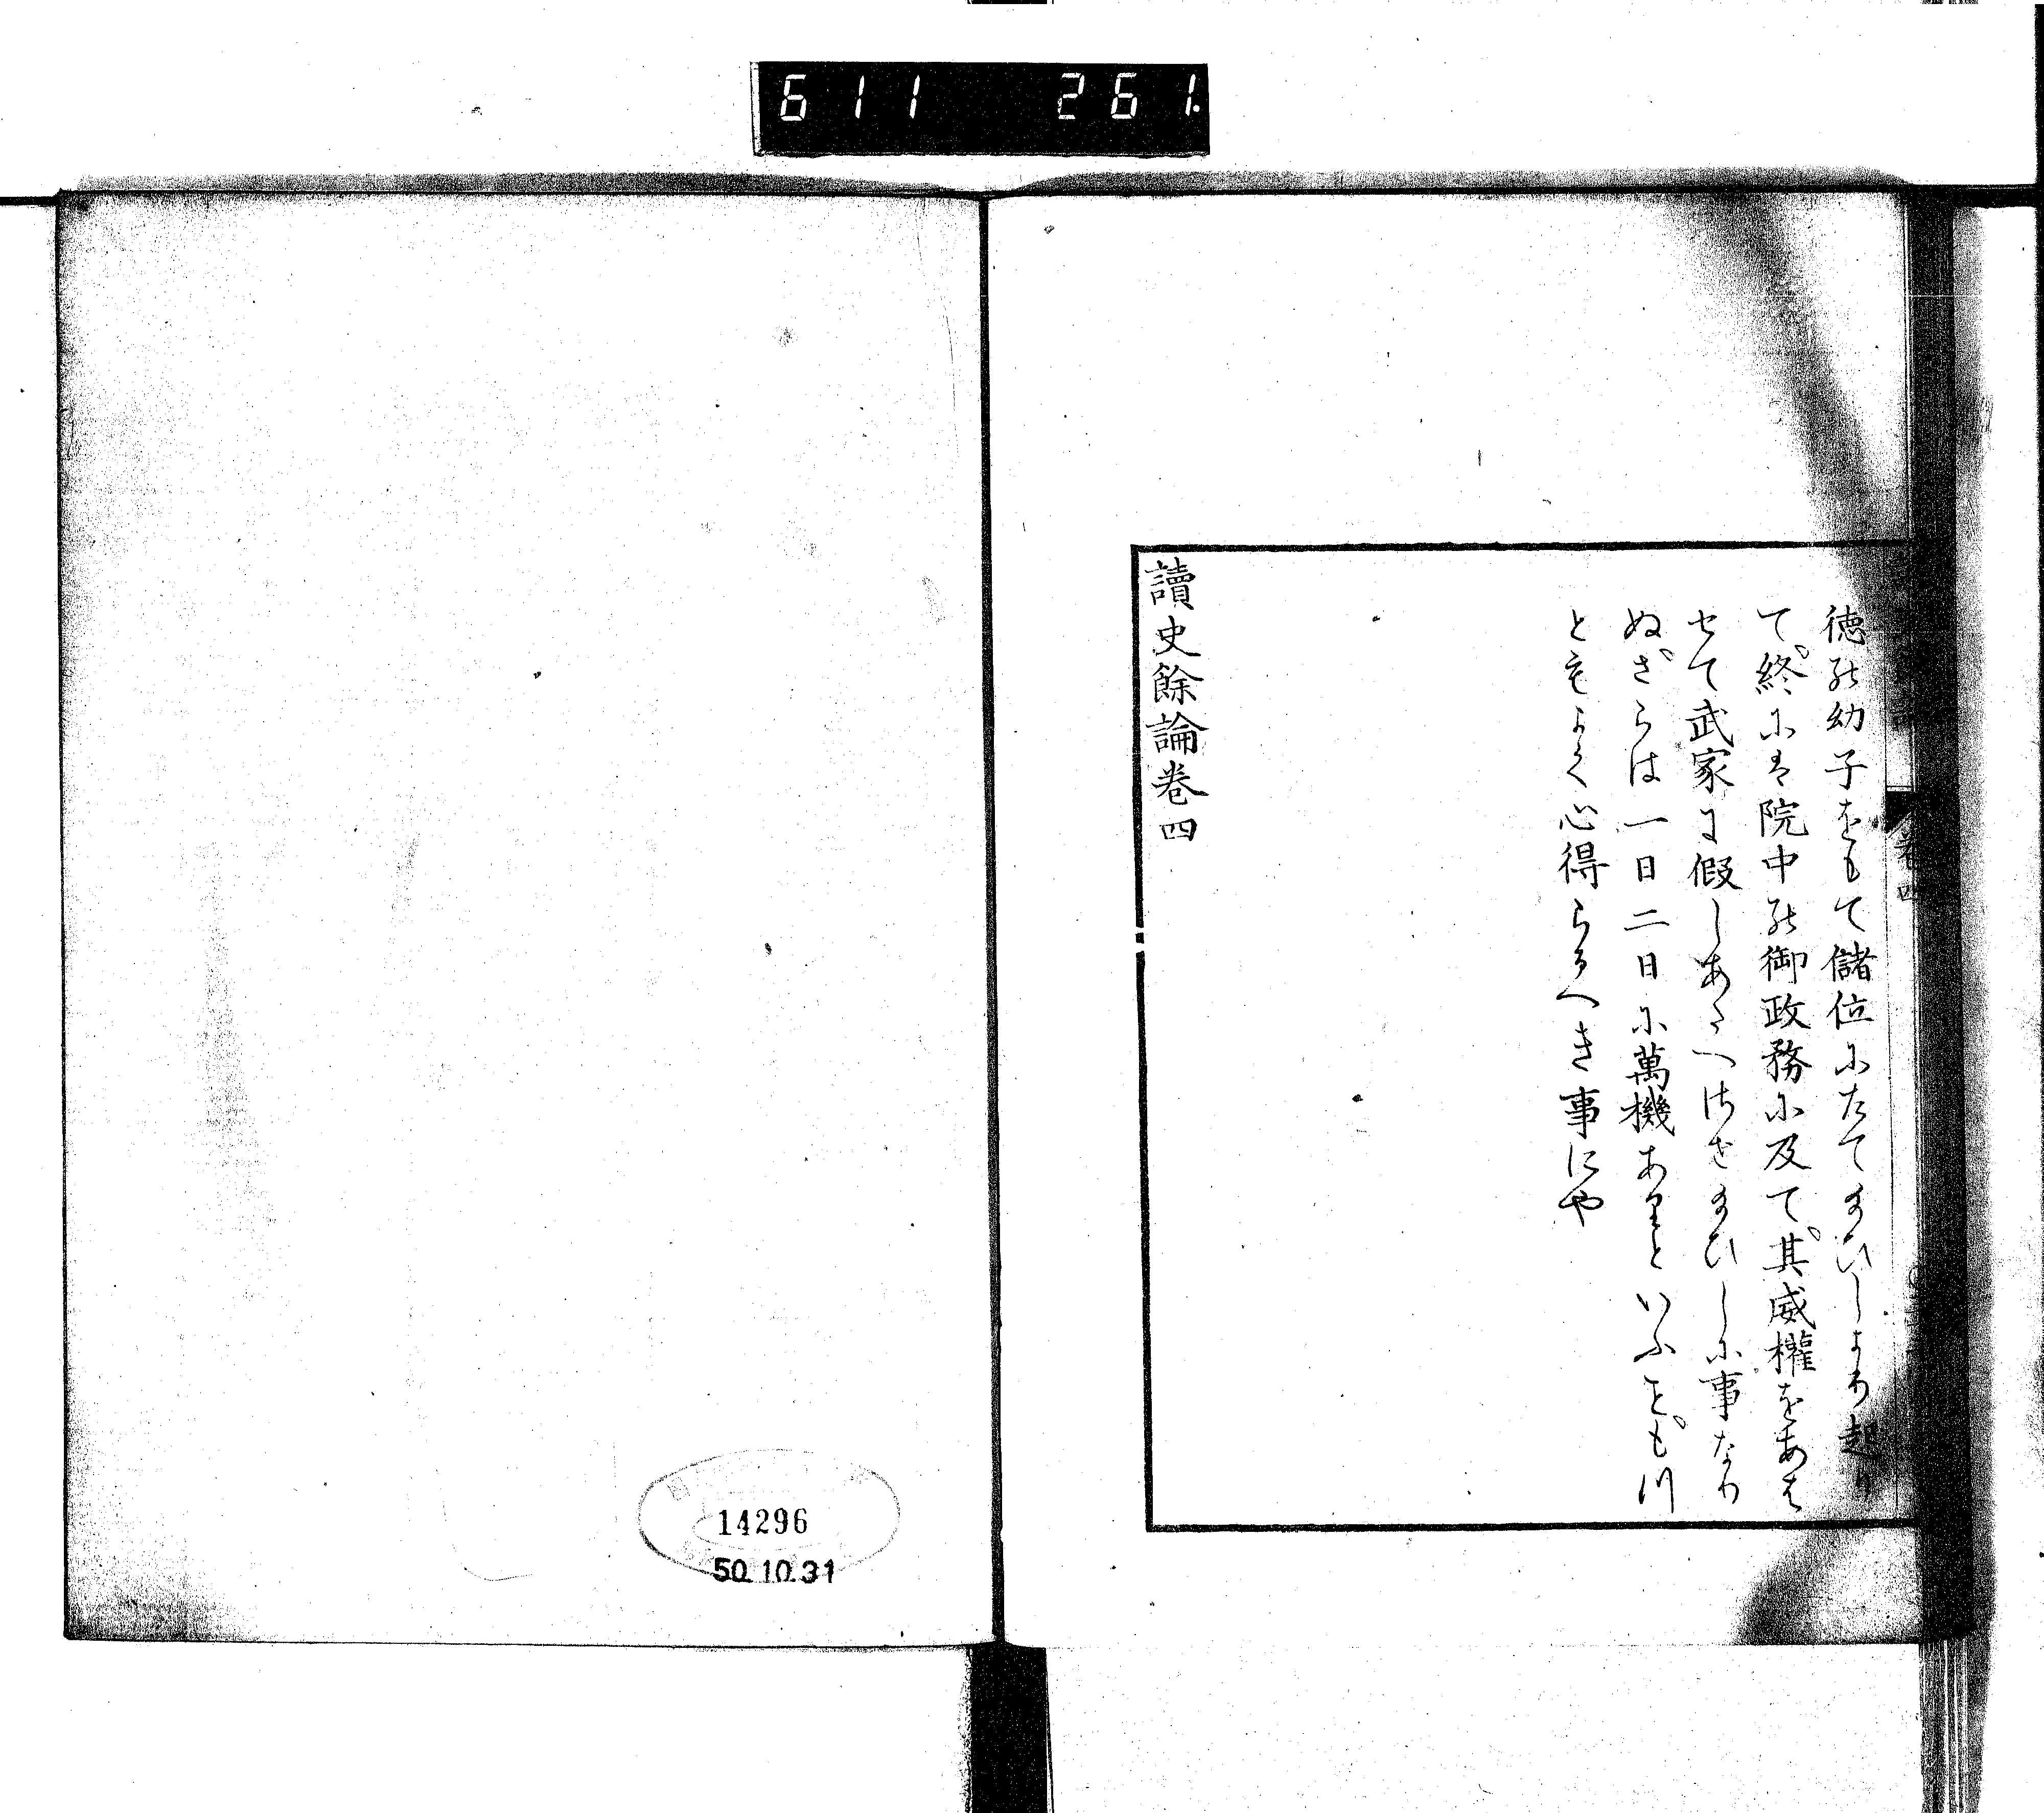 611 261.
徳の幼子をもて儲位にたて給ひしより起り
て。終には院中の御政務に及て。其威權をあは
せて武家に假しあたへ付させ給ひしに事なり
ぬ。さらは一日二日に萬機ありといふこと。もつ
ともよく心得らるへき事にや
讀史餘論卷四
卷四
14296
50.10.31